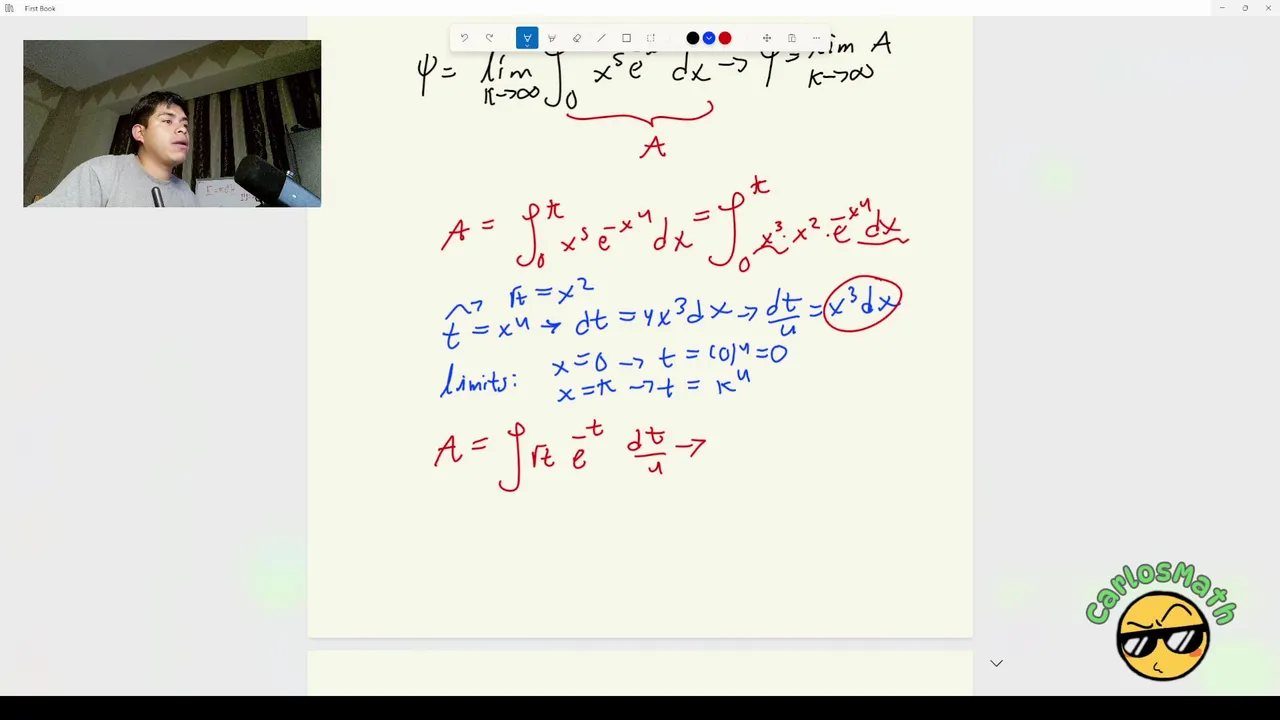 First Book
φ = lim ∫₀ x⁵e dx → φ = lim A
K→∞ K→∞
A
A = ∫₀ᴷ x⁵ e^(-x⁴) dx = ∫₀ᴷ x³ · x² · e^(-x⁴) dx
√t = x²
t = x⁴ → dt = 4x³dx → dt/4 = x³dx
limits: x = 0 → t = (0)⁴ = 0
x = K → t = K⁴
A = ∫ √t e^(-t) dt/4 →
CarlosMath